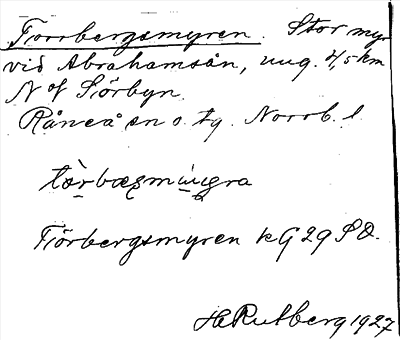 Torrbergsmyren. Stor myr
vid Abrahamsån, ung. 4,5 km
N of Sörbyn.
Råneå sn o. tg. Norrb. l.
Törbergsmyren kG 29 SO.
H Rutberg 1927